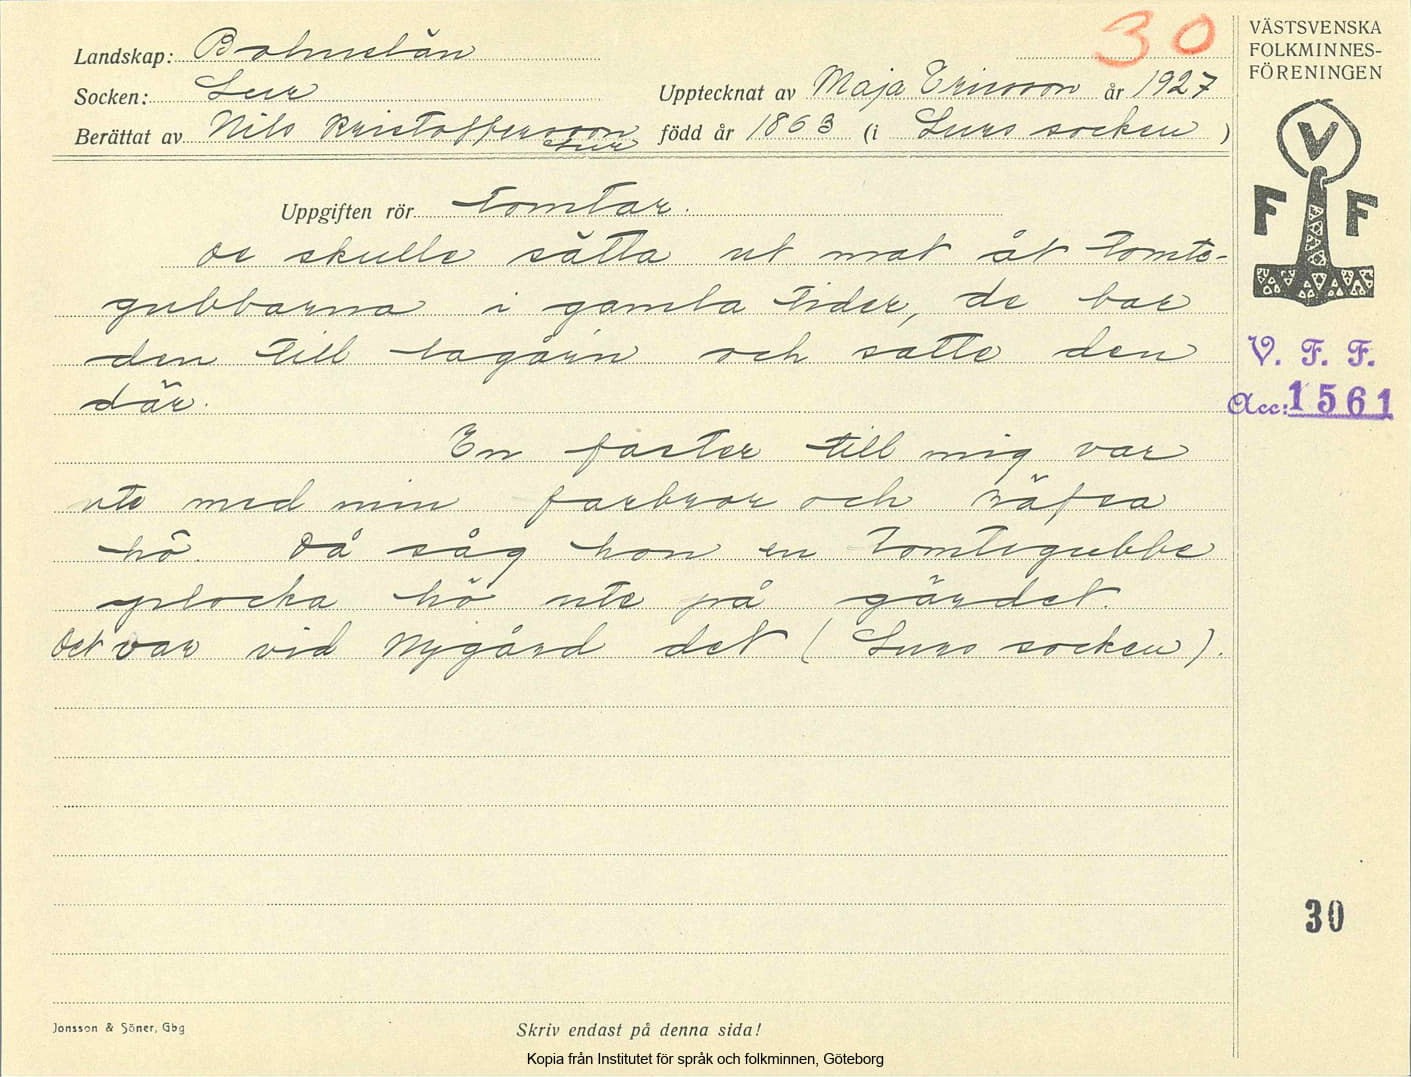 30
VÄSTSVENSKA
FOLKMINNES-
FÖRENINGEN
Landskap: Bohuslän
Socken: Lur
Upptecknat av Maja Ericsson år 1927
Berättat av Nils Kristoffersson född år 1863 (i Lurs socken )
Lur
V
F F
Uppgiften rör tomtar.
De skulle sätta ut mat åt tomte-
gubbarna i gamla tider, de bar
den till lagårn och satte den
där.
V. F. F.
Acc: 1561
En faster till mig var
ute med min farbror och räfsa
hö. Då såg hon en tomtegubbe
plocka hö ute på gärdet.
Det var vid Nygård det (Lurs socken).
30
Jonsson & Söner, Gbg
Skriv endast på denna sida!
Kopia från Institutet för språk och folkminnen, Göteborg